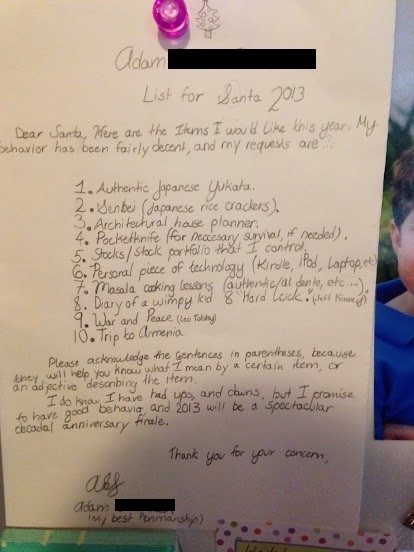 Adam
List for Santa 2013
Dear Santa, Here are the Items I would like this year. My
behavior has been fairly decent, and my requests are...
1. Authentic Japanese Yukata.
2. Senbei (Japanese rice crackers).
3. Architectural house planner.
4. Pocketknife (for neccesary survival, if needed).
5. Stocks/stock portfolio that I control.
6. Personal piece of technology (Kindle, iPod, Laptop, etc)
7. Masala cooking lessons (authentic/al dente, etc...).
8. Diary of a wimpy kid 8 "Hard Luck." (Jeff Kinney)
9. War and Peace (Leo Tolstoy)
10. Trip to Armenia
Please acknowledge the sentences in parentheses, because
they will help you know what I mean by a certain item, or
an adjective describing the item.
I do know I have had ups, and downs, but I promise
to have good behavior and 2013 will be a spectacular
decadal anniversary finale.
Thank you for your concern,
Adam
(My best Penmanship)